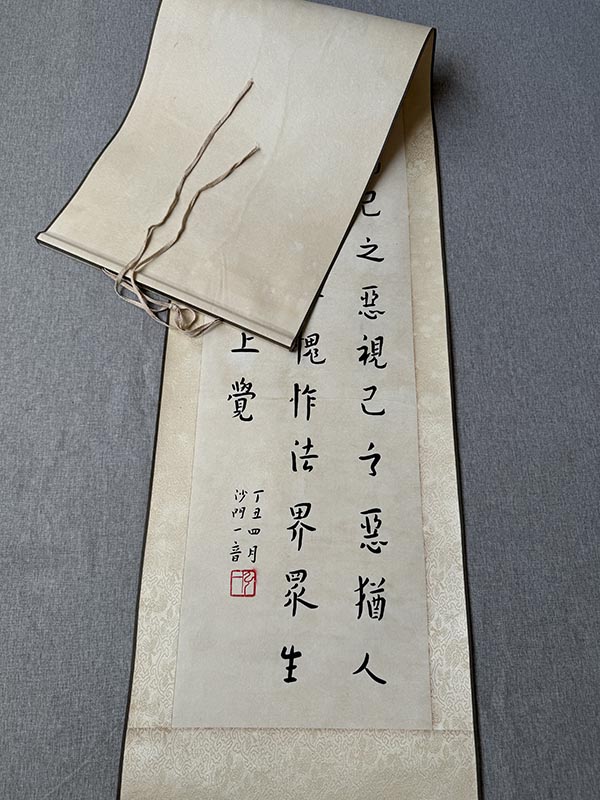 己之惡視己之惡猶人
愧怍法界眾生
上覺
丁丑四月
沙門一音
弘一